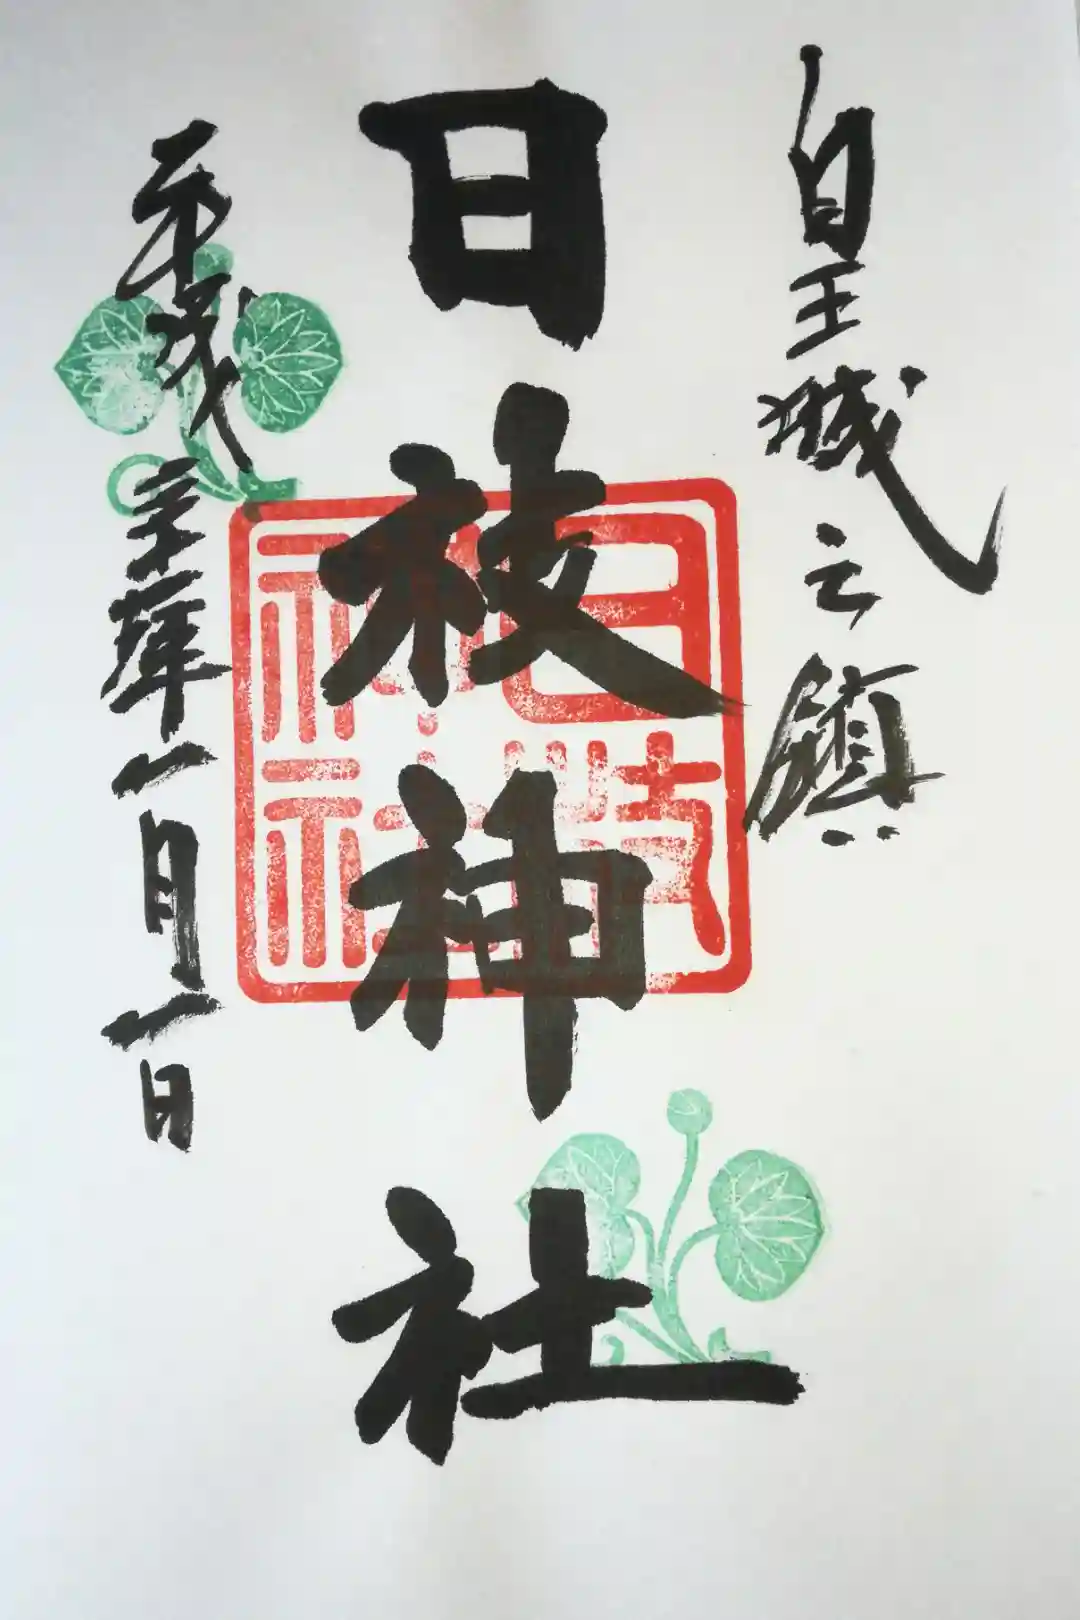 皇城之鎮
日枝神社
平成三十一年一月一日
日枝
神社